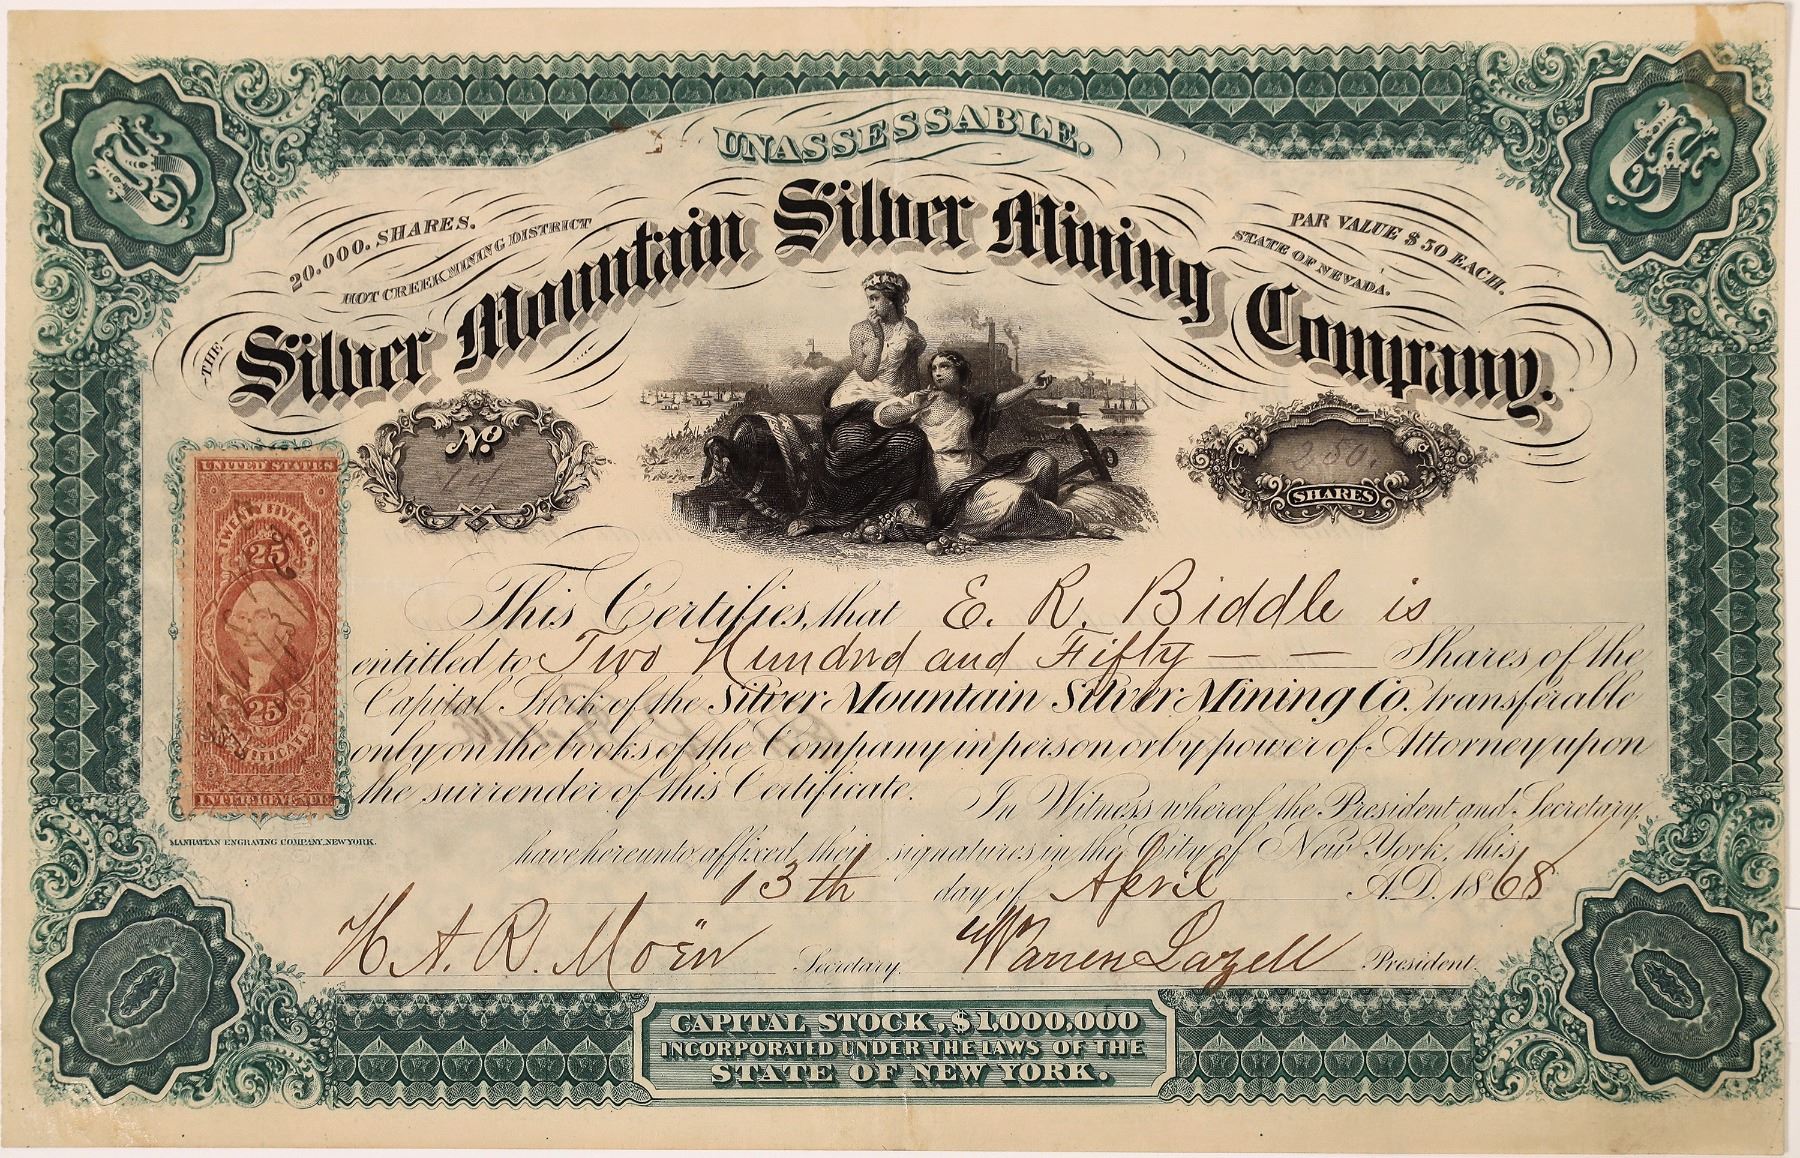 UNASSESSABLE.
20.000. SHARES.
HOT CREEK MINING DISTRICT
PAR VALUE $50 EACH.
STATE OF NEVADA.
THE
Silver Mountain Silver Mining Company.
No
14
250.
SHARES
UNITED STATES
TWENTY FIVE CTS.
25
25
INTER. REVENUE
MANHATTAN ENGRAVING COMPANY, NEW YORK.
This Certifies, that E. R. Biddle is
entitled to Two Hundred and Fifty — — Shares of the
Capital Stock of the Silver Mountain Silver Mining Co. transferable
only on the books of the Company in person or by power of Attorney upon
the surrender of this Certificate. In Witness whereof the President and Secretary,
have hereunto affixed their signatures in the City of New York, this
13th day of April A.D. 1868
H. A. R. Moën Secretary. Warren Lazell President.
CAPITAL STOCK, $1,000,000
INCORPORATED UNDER THE LAWS OF THE
STATE OF NEW YORK.